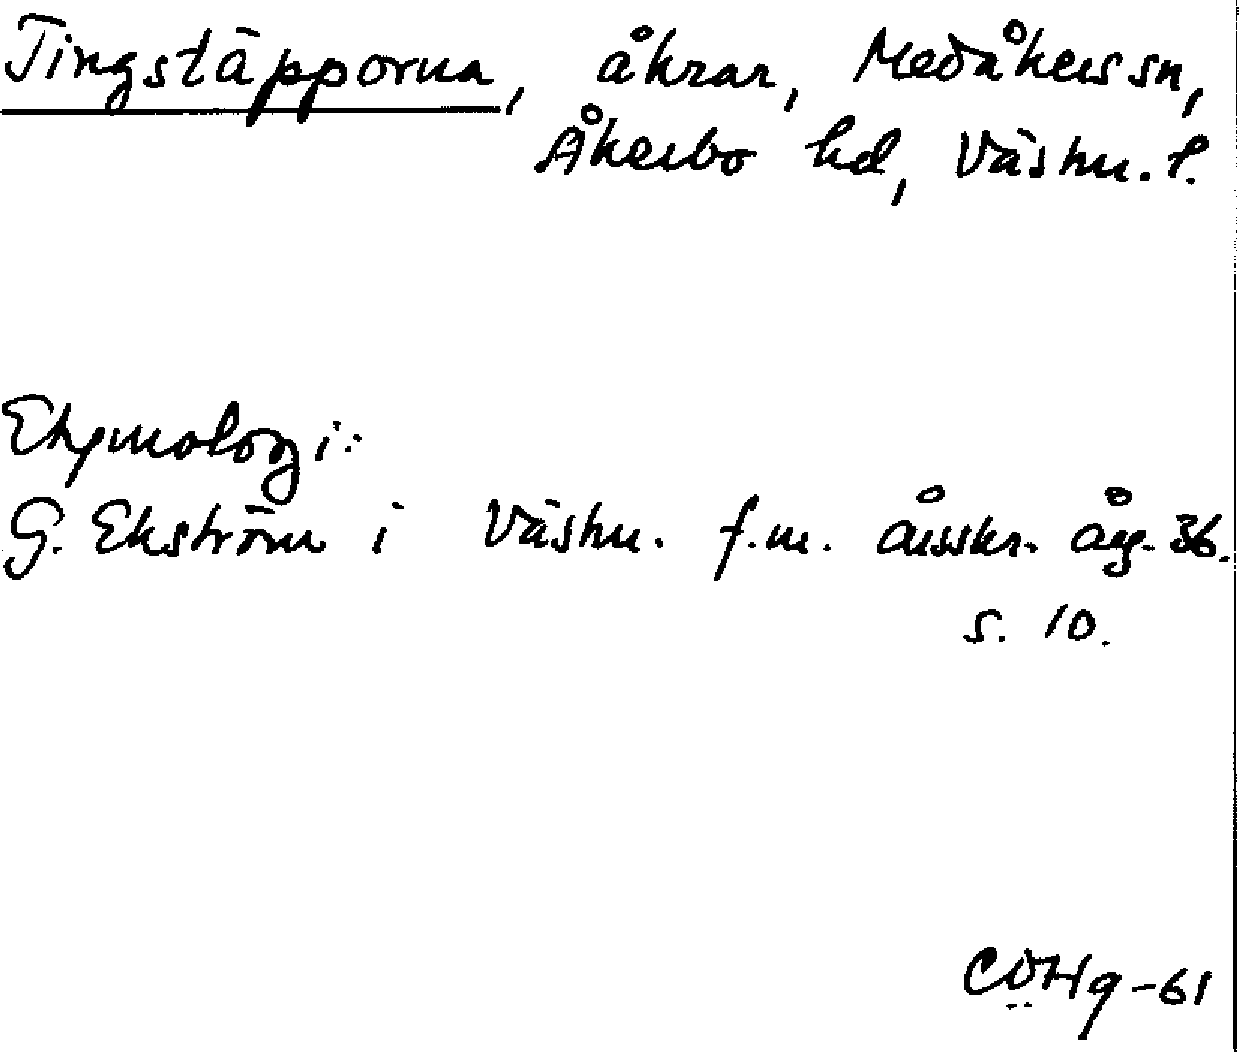 Tingstäpporna, åkrar, Medåkers sn,
Åkerbo hd, Västm. l.
Etymologi:
G. Ekström i Västm. f.m. årsskr. årg. 36.
s. 10.
-61